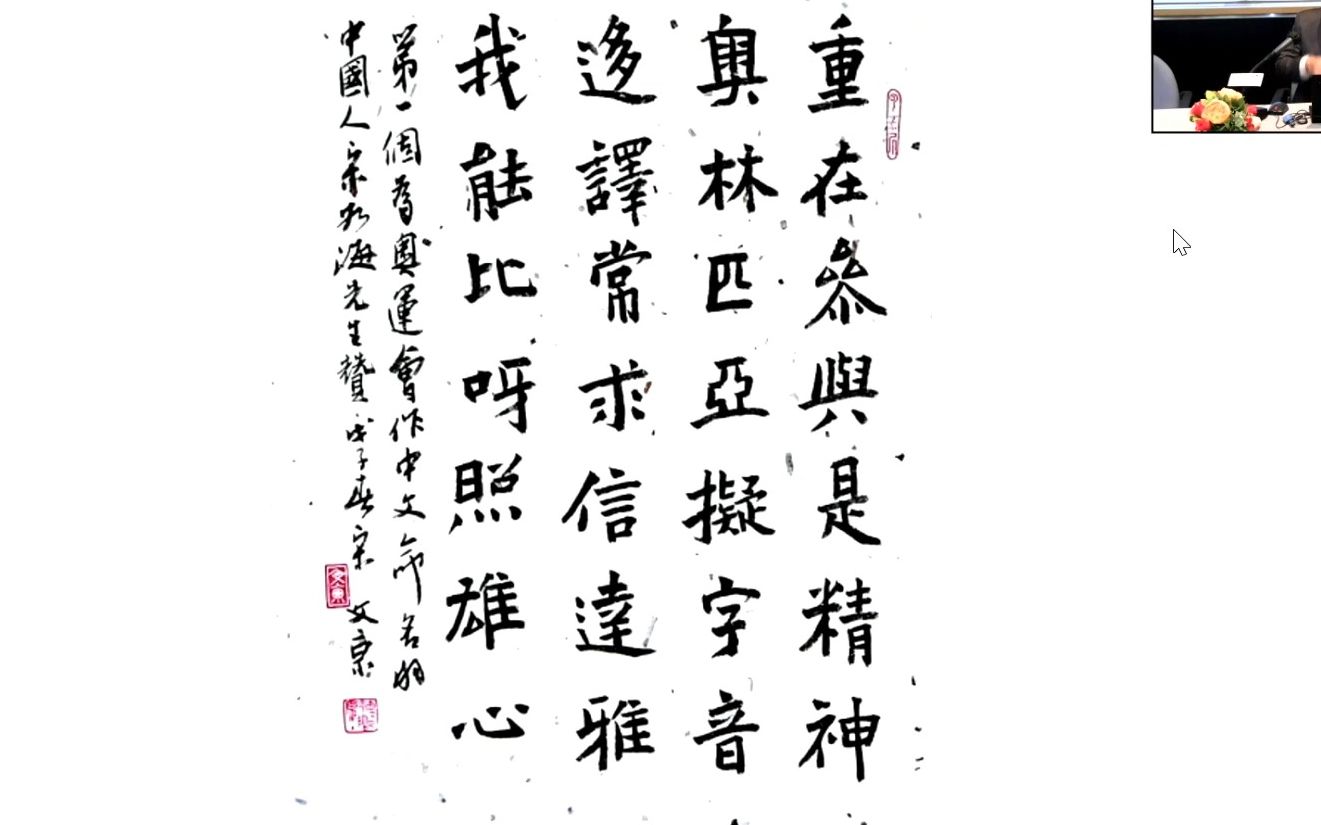 重在參與是精神
奧林匹亞擬字音
迻譯常求信達雅
我能比呀照雄心
第一個為奧運會作中文命名的
中國人宋如海先生贊 戊子春 宋文京